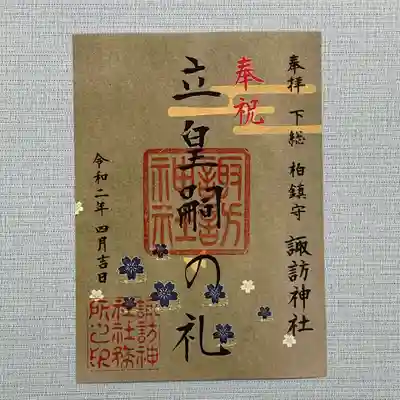 奉拝 下総 柏鎮守 諏訪神社
奉祝
立皇嗣の礼
諏訪神社
令和二年 四月吉日
諏訪神
社社務
所之印